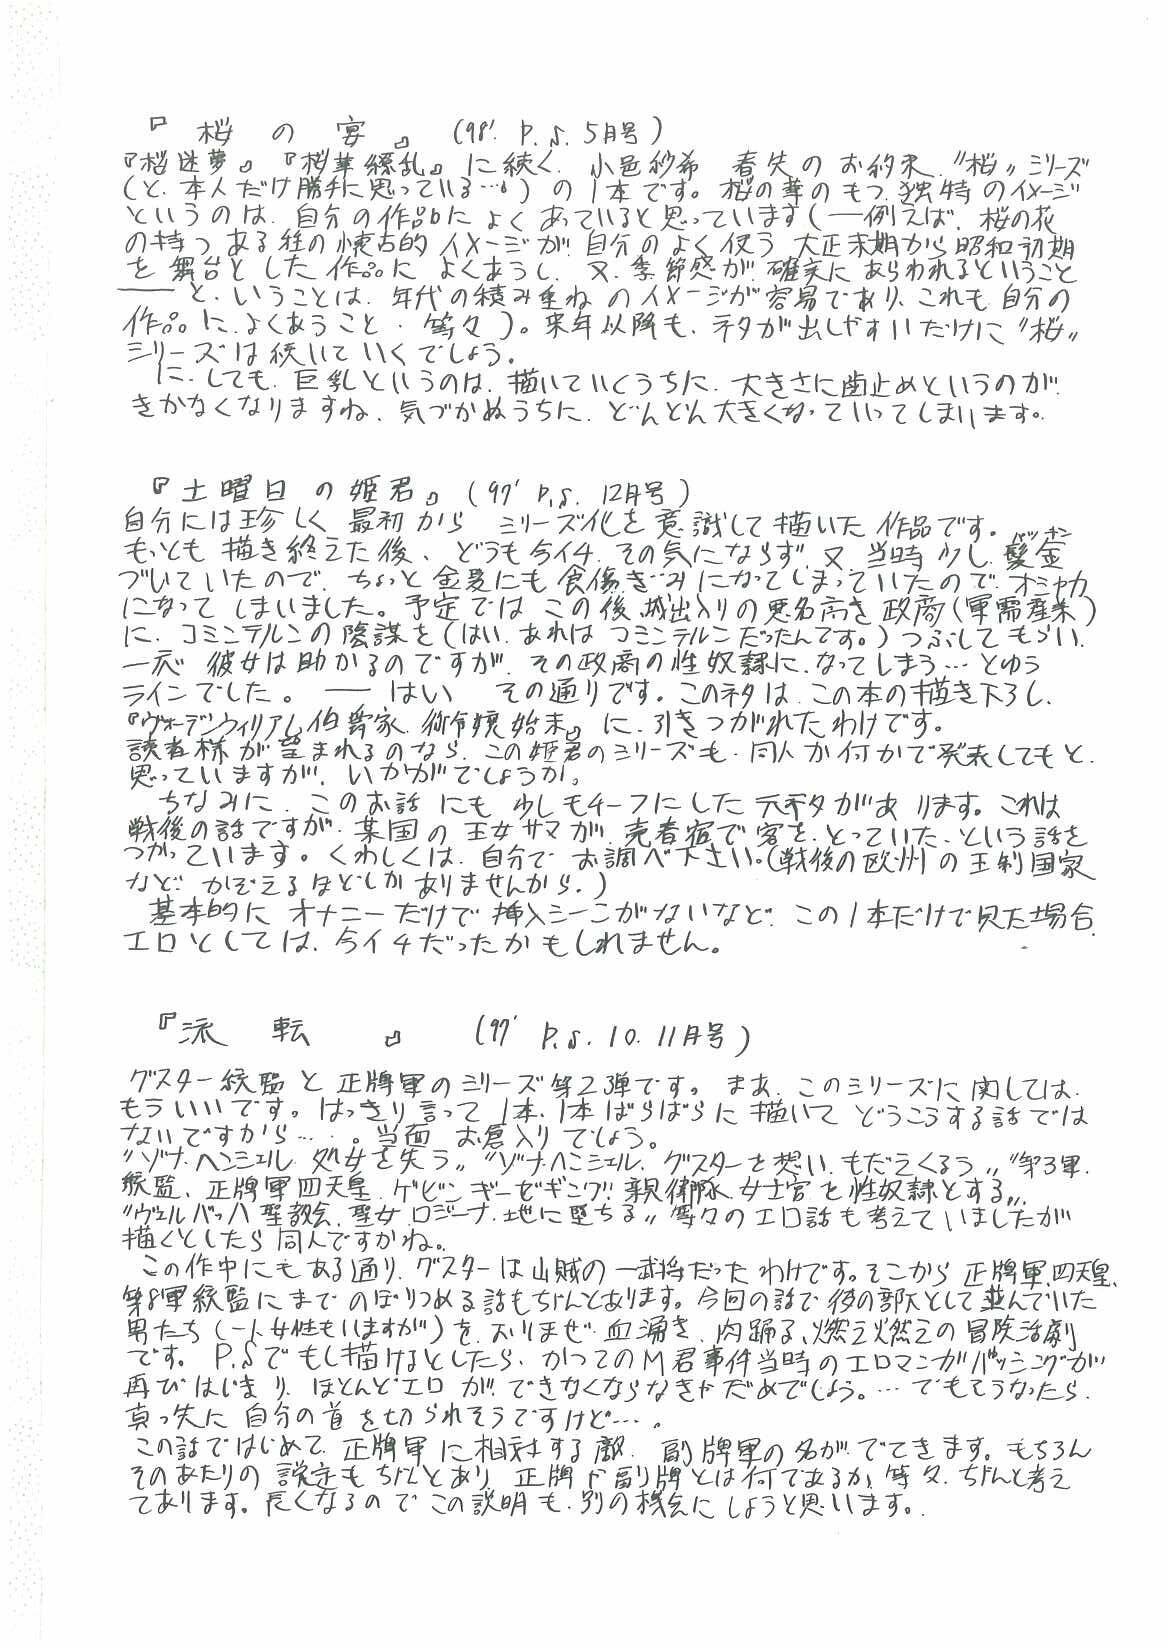 『桜の宴』 (98'. P.S. 5月号)
『桜迷夢』『桜華繚乱』に続く、小邑紗希 春先のお約束、〝桜〟シリーズ
(と、本人だけ勝手に思っている…。)の1本です。桜の華のもつ、独特のイメージ
というのは、自分の作品によくあっていると思っています(――例えば、桜の花
の持つある種の懐古的イメージが、自分のよく使う大正末期から昭和初期
を舞台とした作品によくあうし、又、季節感が確実にあらわれるということ
――と、いうことは、年代の積み重ねのイメージが容易であり、これも自分の
作品に、よくあうこと、等々)。来年以降も、ネタが出しやすいだけに〝桜〟
シリーズは続いていくでしょう。
に、しても、巨乳というのは、描いていくうちに、大きさに歯止めというのが、
きかなくなりますね、気づかぬうちに、どんどん大きくなっていってしまいます。
『土曜日の姫君』(97' P.S. 12月号)
自分には珍しく最初からシリーズ化を意識して描いた作品です。
もっとも描き終えた後、どうも今イチ、その気にならず、又、当時少し髪金パッキン
づいていたので、ちょっと金髪にも食傷ぎみになってしまっていたので、オシャカ
になってしまいました。予定ではこの後、城出入りの悪名高き政商(軍需産業)
に、コミンテルンの陰謀を(はい、あれはコミンテルンだったんです。)つぶしてもらい、
一応彼女は助かるのですが、その政商の性奴隷に、なってしまう…とゆう
ラインでした。――はい その通りです。このネタは、この本の描き下ろし、
『ヴォーデンウィリアム伯爵家、御令嬢始末』に、引きつがれたわけです。
読者様が望まれるのなら、この姫君のシリーズも、同人か何かで発表してもと、
思っていますが、いかがでしょうか。
ちなみに、このお話にも少しモチーフにした元ネタがあります。これは
戦後の話ですが、某国の王女サマが、売春宿で客を、とっていた、という話を
つかっています。くわしくは、自分でお調べ下さい。(戦後の欧州の王制国家
など、かぞえるほどしかありませんから。)
基本的にオナニーだけで挿入シーンがないなど、この1本だけで見た場合、
エロとしては、今イチだったかもしれません。
『流転』 (97' P.S. 10. 11月号)
グスター統監と正牌軍のシリーズ第2弾です。まあ、このシリーズに関しては、
もういいです。はっきり言って1本、1本ばらばらに描いてどうこうする話では
ないですから…。当面お倉入りでしょう。
〝ゾナ・ヘンシェル、処女を失う〟〝ゾナ・ヘンシェル、グスターを想い、もだえくるう〟〝第3軍、
統監、正牌軍四天皇、ゲビン・ギーゼギング!!親衛隊、女士官を性奴隷とする〟、
〝ヴェルバッハ聖教会、聖女、ロジーナ、地に堕ちる〟等々のエロ話も考えていましたが
描くとしたら同人ですかね。
この作中にもある通り、グスターは山賊の一武将だったわけです。そこから正牌軍、四天皇、
第8軍統監にまでのぼりつめる話もちゃんとあります。今回の話で彼の部下として並んでいた
男たち(一人女性もいますが)を、おりまぜ、血湧き、肉踊る、燃え燃えの冒険活劇
です。P.Sでもし描けるとしたら、かつてのM君事件当時のエロマンガバッシングが
再びはじまり、ほとんどエロが、できなくならなきゃだめでしょう。…でもそうなったら、
真っ先に自分の首を切られそうですけど…。
この話ではじめて、正牌軍に相対する敵、副牌軍の名が、でてきます。もちろん
そのあたりの設定もちゃんとあり、正牌や副牌とは何であるか、等々、ちゃんと考え
てあります。長くなるのでこの説明も、別の機会にしようと思います。